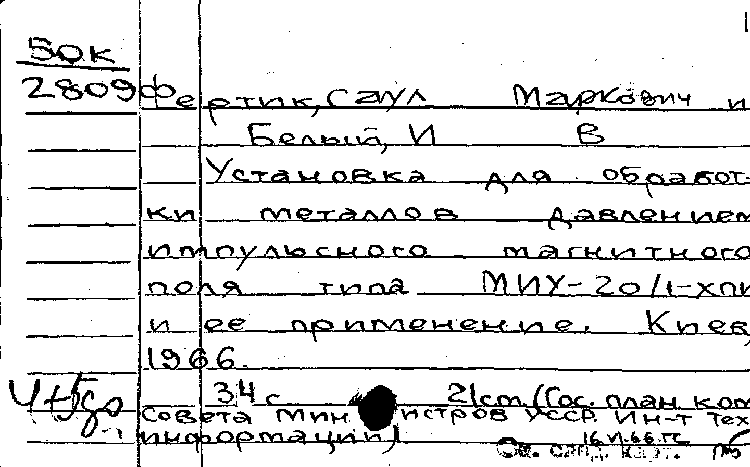 50к
2809
Фертик, Саул Маркович и
Белый, И В
Установка для обработ-
ки металлов давлением
импульсного магнитного
поля типа МИУ-20/1-ХПИ
и ее применение. Киев,
1966.
34 с 21 cm. (Гос. план. ком
Совета Министров УССР. Ин-т тех
информации)